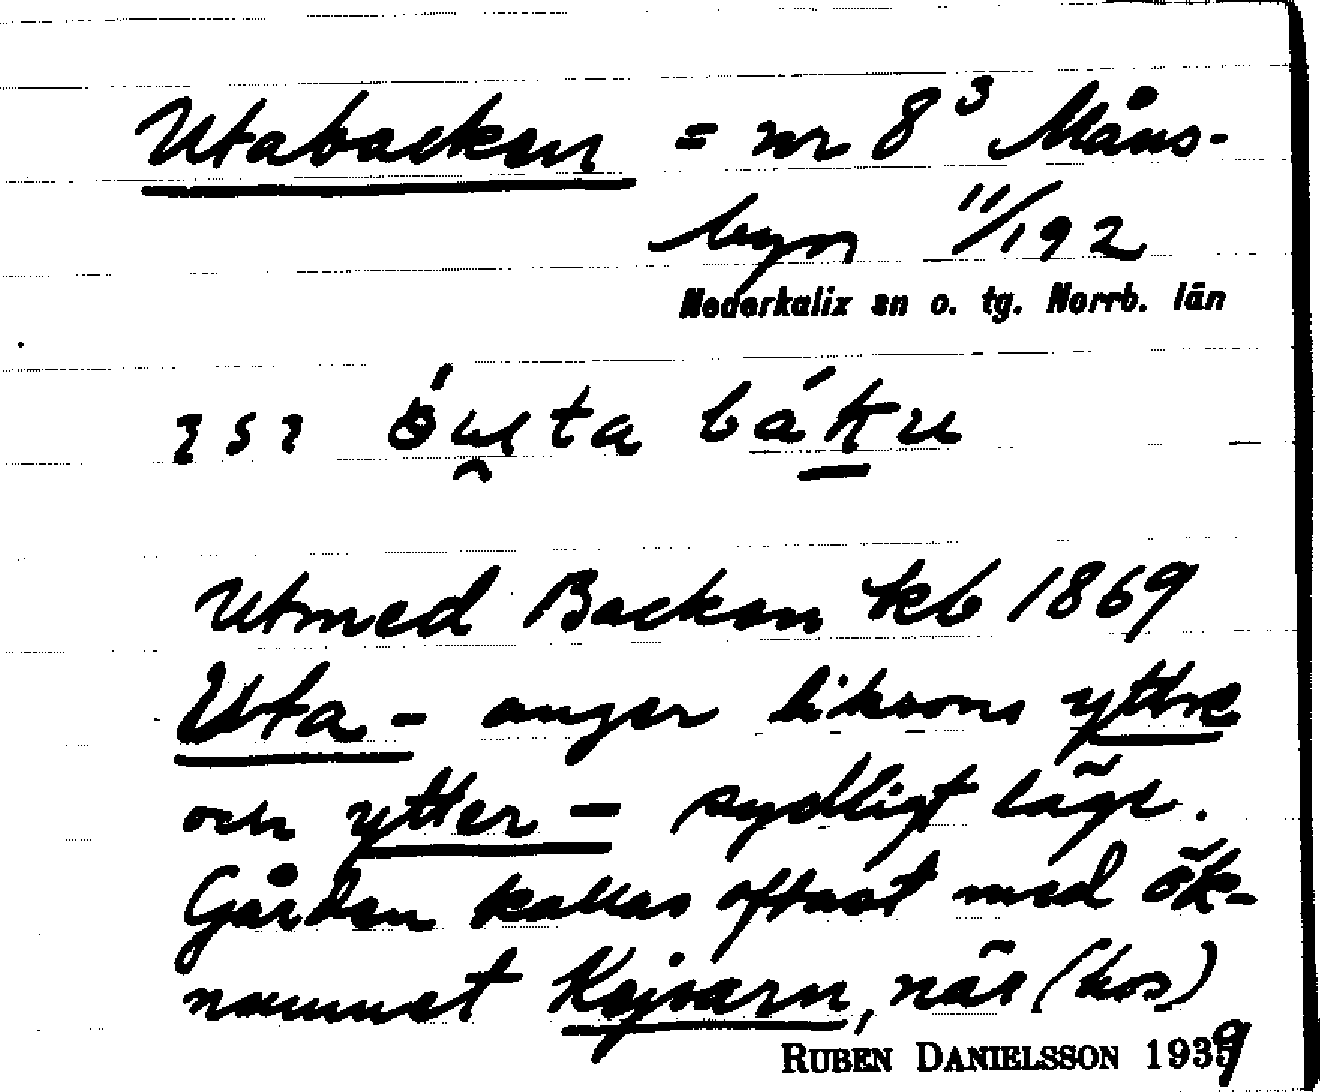 Utabacken = nr 8³ Måns-
byn 11/192
Nederkalix sn o. tg. Norrb. län
ʔsʔ óu̯ta báku
Utmed Backen kb 1869
Uta- anger liksom yttre
och ytter- sydligt läge.
Gården kallas oftast med ök-
namnet Kajsarn, näs (hos)
RUBEN DANIELSSON 1939